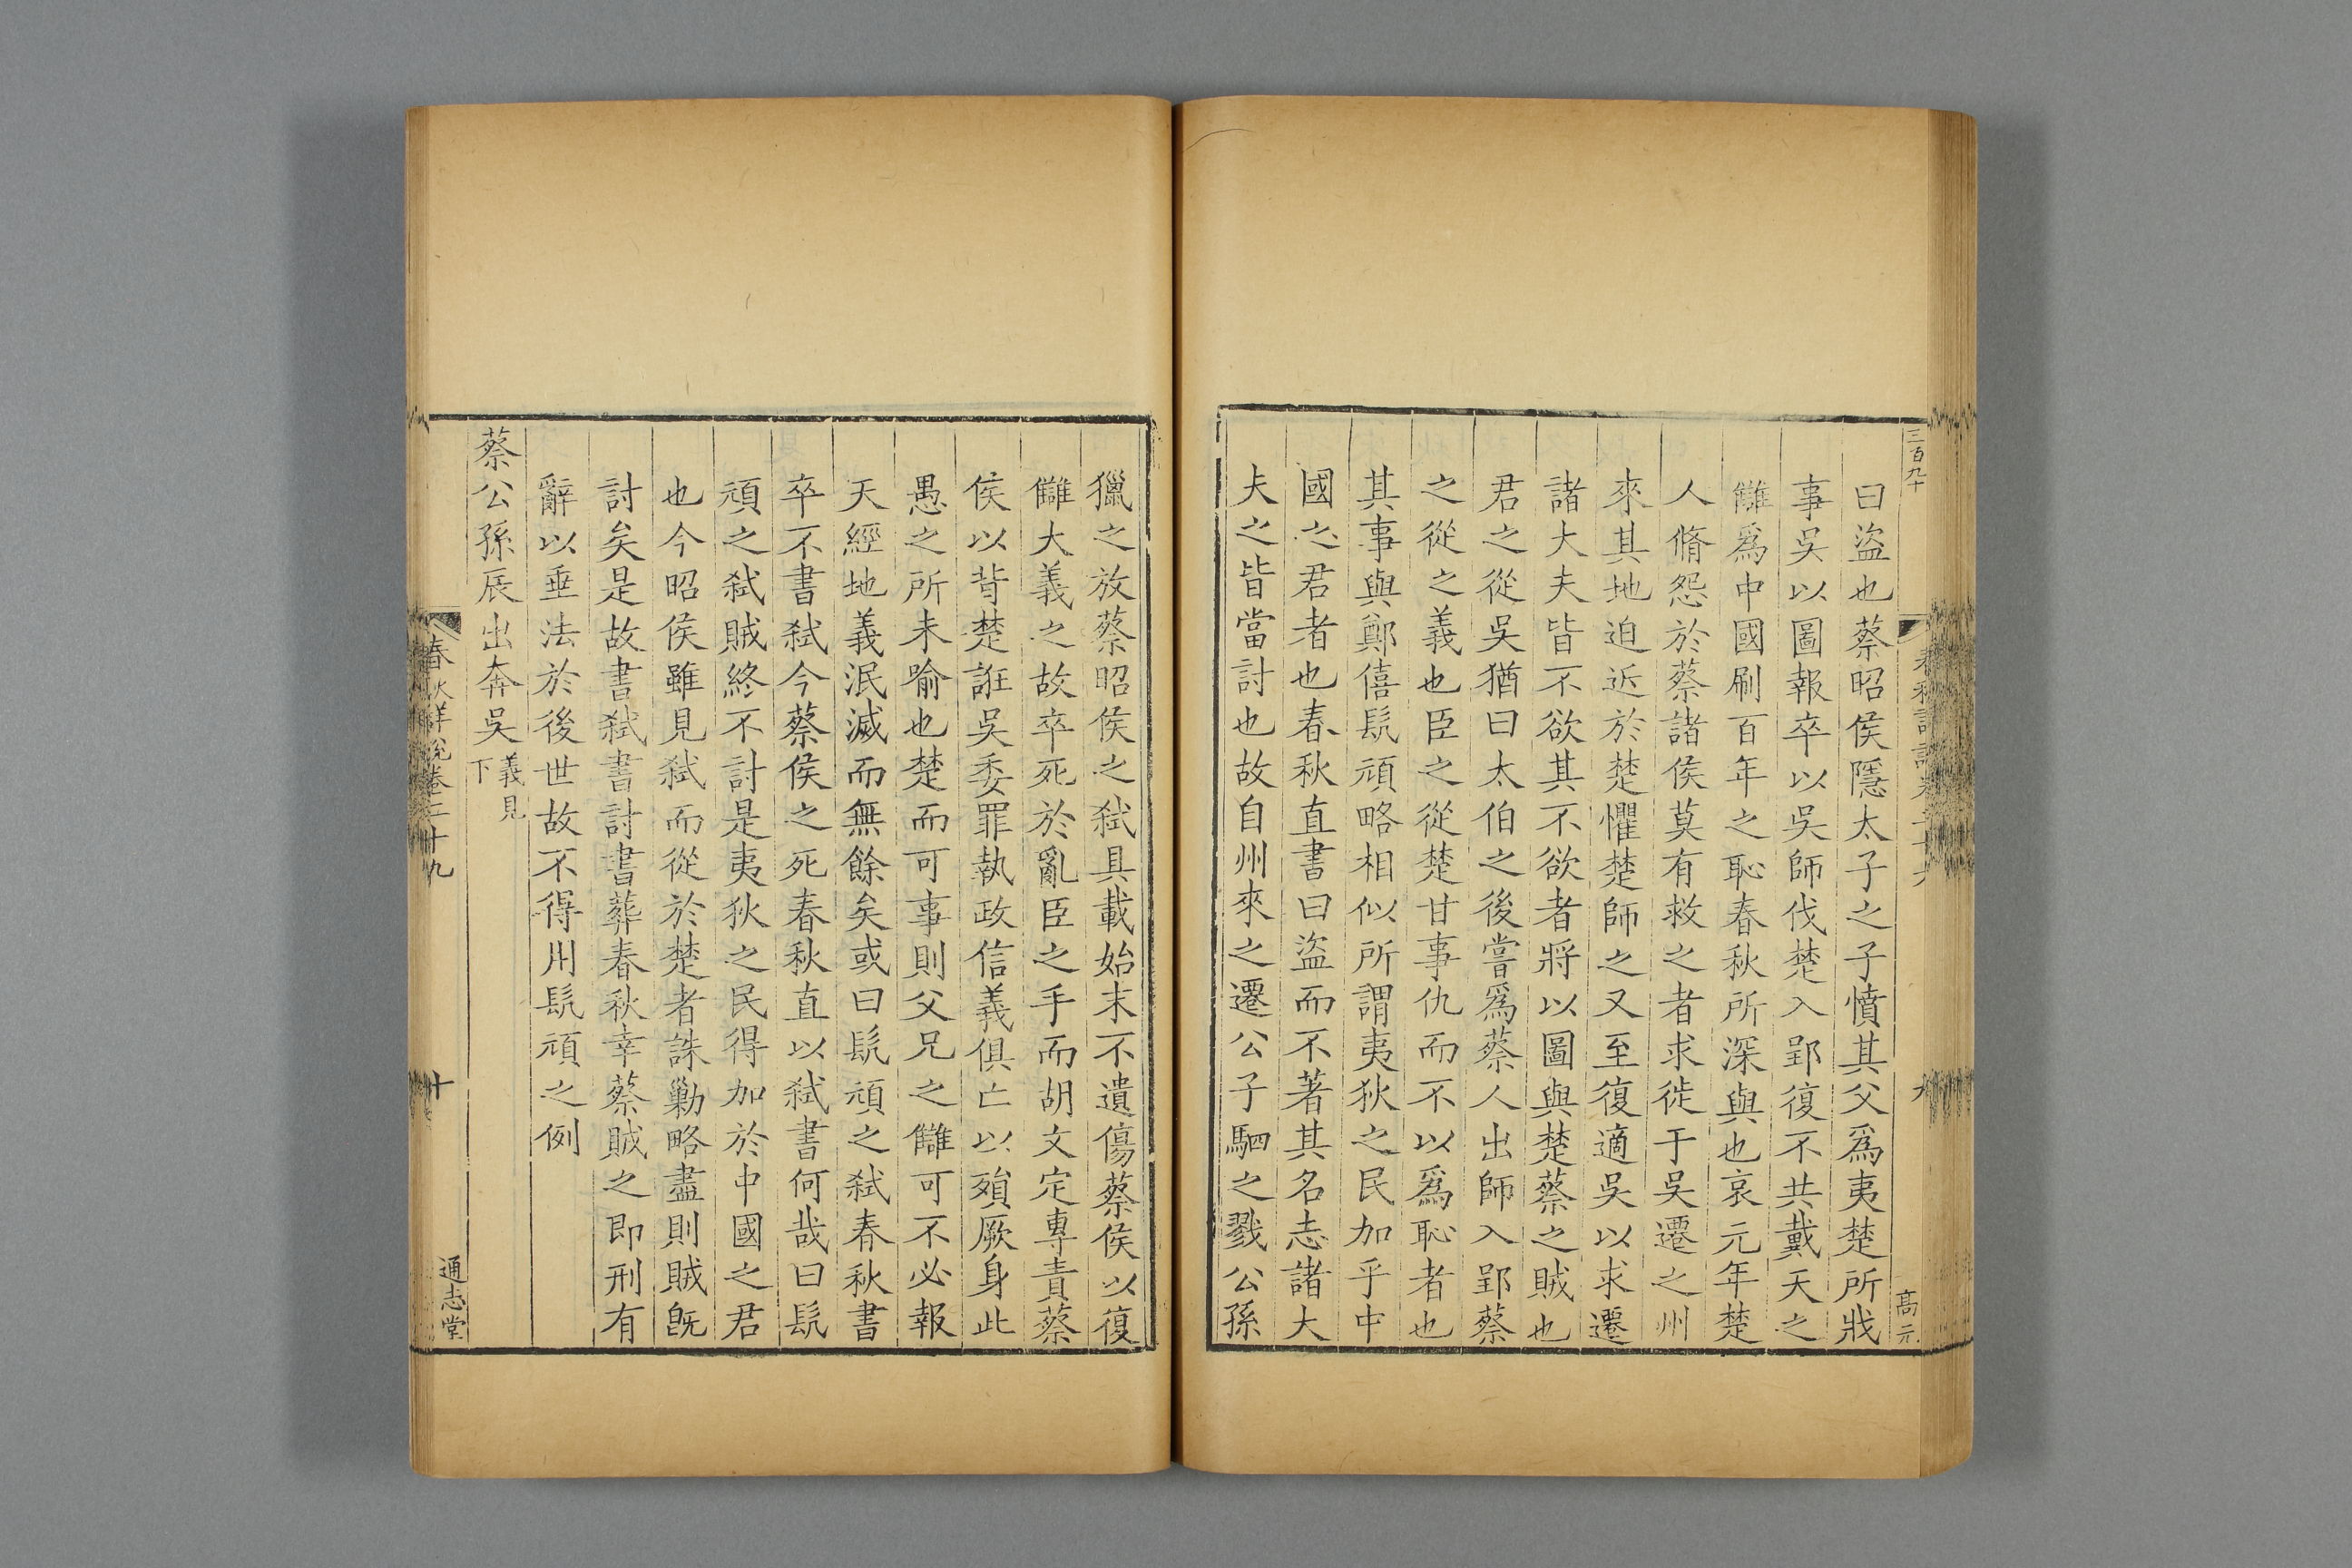 三百九十
曰盜也蔡昭侯隱太子之子憤其父爲夷楚所戕
事吳以圖報卒以吳師伐楚入郢復不共戴天之
讎爲中國刷百年之恥春秋所深與也哀元年楚
人脩怨於蔡諸侯莫有救之者求徙于吳遷之州
來其地迫近於楚懼楚師之又至復適吳以求遷
諸大夫皆不欲其不欲者將以圖與楚蔡之賊也
君之從吳猶曰太伯之後嘗爲蔡人出師入郢蔡
之從之義也臣之從楚甘事仇而不以爲恥者也
其事與鄭僖髠頑略相似所謂夷狄之民加乎中
國之君者也春秋直書曰盜而不著其名志諸大
夫之皆當討也故自州來之遷公子駟之戮公孫
九
高元
獵之放蔡昭侯之弑具載始末不遺傷蔡侯以復
讎大義之故卒死於亂臣之手而胡文定專責蔡
侯以背楚誑吳委罪執政信義俱亡以殞厥身此
愚之所未喻也楚而可事則父兄之讎可不必報
天經地義泯滅而無餘矣或曰髠頑之弑春秋書
卒不書弑今蔡侯之死春秋直以弑書何哉曰髠
頑之弑賊終不討是夷狄之民得加於中國之君
也今昭侯雖見弑而從於楚者誅勦略盡則賊旣
討矣是故書弑書討書葬春秋幸蔡賊之即刑有
辭以垂法於後世故不得用髠頑之例
蔡公孫辰出奔吳義見下
春秋詳說卷二十九
十
通志堂